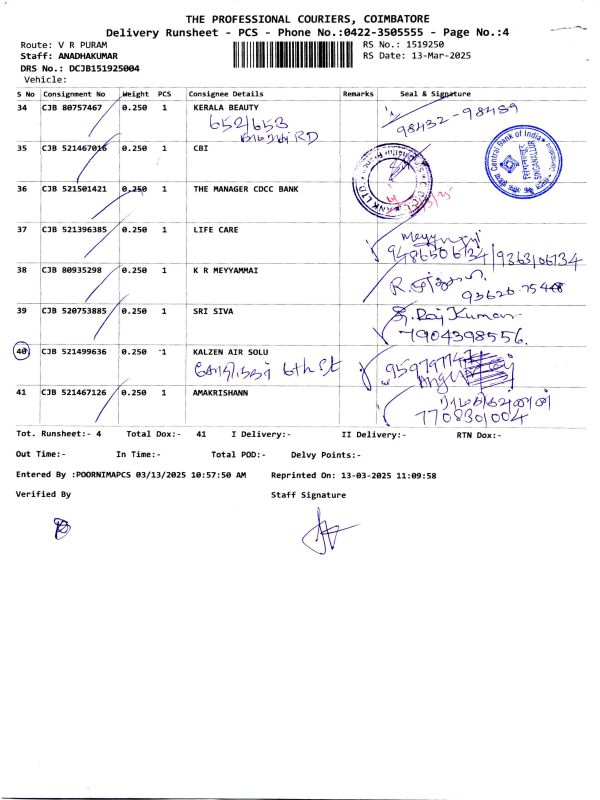 THE PROFESSIONAL COURIERS, COIMBATORE
Delivery Runsheet - PCS - Phone No.:0422-3505555 - Page No.:4
Route: V R PURAM
RS No.: 1519250
Staff: ANADHAKUMAR
RS Date: 13-Mar-2025
DRS No.: DCJB151925004
Vehicle:
S No Consignment No Weight PCS Consignee Details Remarks Seal & Signature
34 CJB 80757467 0.250 1 KERALA BEAUTY
652/653
RD
98432-98489
35 CJB 521467016 0.250 1 CBI
Central Bank of India
SINGANALLUR
36 CJB 521501421 0.250 1 THE MANAGER CDCC BANK
BANK LTD
37 CJB 521396385 0.250 1 LIFE CARE
9486506734/9363106734
38 CJB 80935298 0.250 1 K R MEYYAMMAI
39 CJB 520753885 0.250 1 SRI SIVA
Raj Kumar
7904398556.
40 CJB 521499636 0.250 1 KALZEN AIR SOLU
6th St
41 CJB 521467126 0.250 1 AMAKRISHANN
7708301004
Tot. Runsheet:- 4 Total Dox:- 41 I Delivery:- II Delivery:- RTN Dox:-
Out Time:- In Time:- Total POD:- Delvy Points:-
Entered By :POORNIMAPCS 03/13/2025 10:57:50 AM Reprinted On: 13-03-2025 11:09:58
Verified By Staff Signature